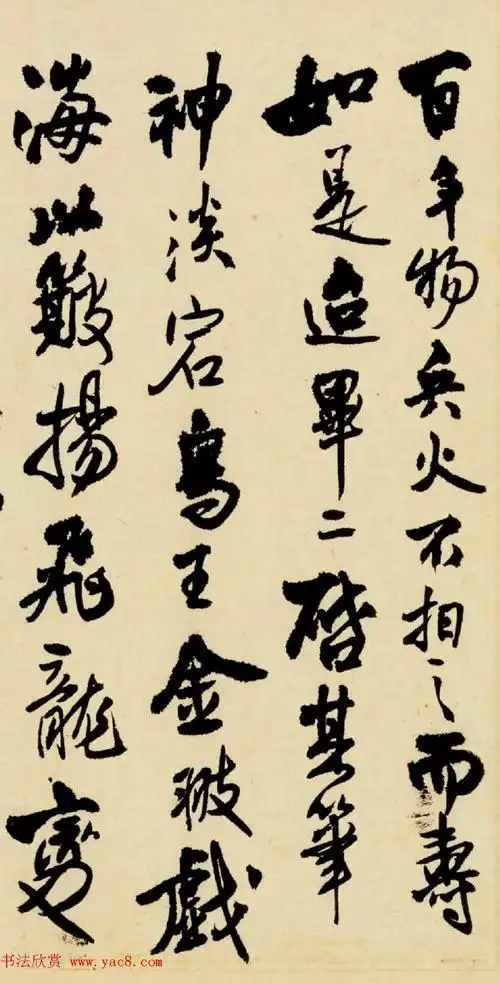 百年物兵火不相之而壽
如是畢二啓其筆
神淡宕鳥王金翅戲
海以揚飛龍變
书法欣赏 www.yac8.com